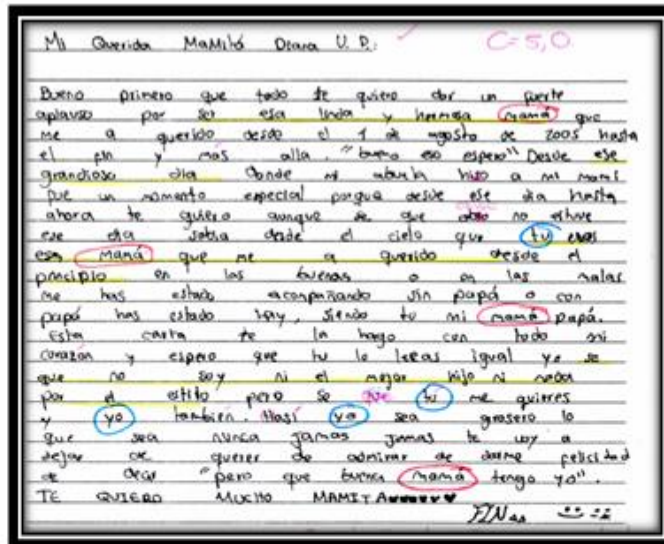 Mi Querida Mamitá Diana U. P.:
C= 5,0
Bueno primero que todo te quiero dar un fuerte
aplauso por ser esa linda y hermosa mamá que
me a querido desde el 1 de agosto de 2005 hasta
el fin y más alla. "bueno eso espero" Desde ese
grandioso dia donde mi abuela hiso a mi mami
fue un momento especial porque desde ese dia hasta
ahora te quiero aunque se que no estuve
ese dia sabia desde el cielo que tu eras
esa mamá que me a querido desde el
principio en las buenas o en las malas
me has estado acompañando sin papá o con
papá has estado hay, siendo tu mi mamá papá.
Esta carta te la hago con todo mi
corazón y espero que tu la leeas igual yo se
que no soy ni el mejor hijo ni nada
por el estilo pero se que tu me quieres
y yo también. Hasi yo sea grosero lo
que sea nunca jamas jamas te voy a
dejar de querer de admirar de darme felicidad
de decir "pero que buena mamá tengo yo".
TE QUIERO MUCHO MAMITA
FIN